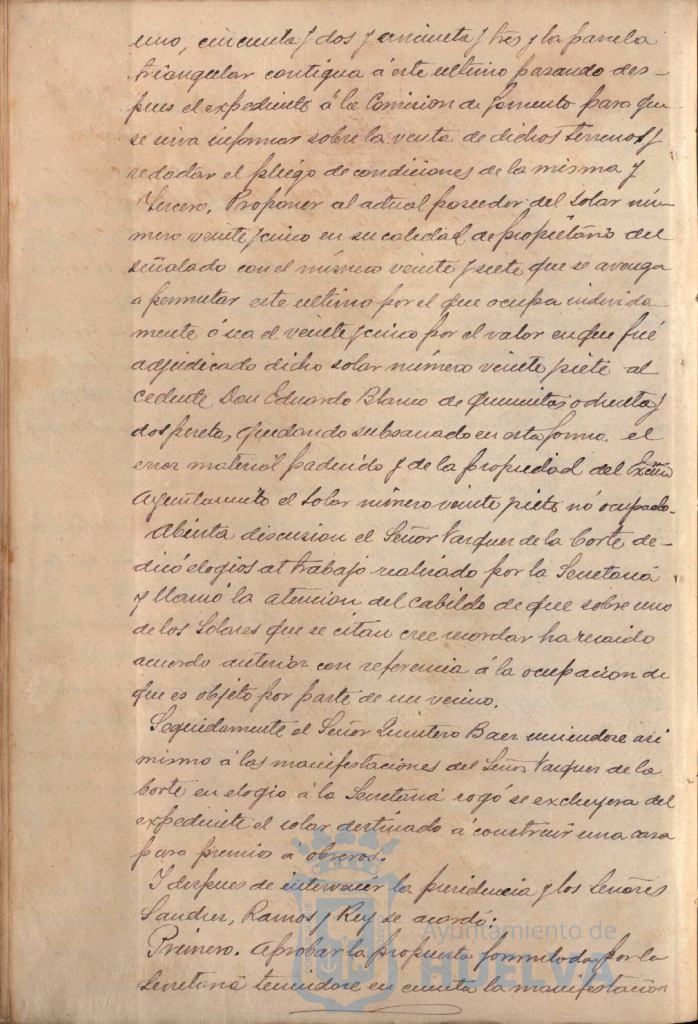 uno, cincuenta y dos y cincuenta y tres y la parcela
triangular contigua á este ultimo pasando des-
pues el expediente á la Comision de Fomento para que
se sirva informar sobre la venta de dichos terrenos y
redactar el pliego de condiciones de la misma y
Tercero. Proponer al actual poseedor del solar nú-
mero veinte y cinco en su calidad de propietario del
señalado con el número veinte y siete que se avenga
a permutar este ultimo por el que ocupa indevida
mente ó sea el veinte y cinco por el valor en que fué
adjudicado dicho solar número veinte y siete al
cedente Don Eduardo Blanco de quinientas ochenta y
dos pesetas, quedando subsanado en esta forma el
error material padecido y de la propiedad del Excmo
Ayuntamiento el solar número veinte y siete nó ocupado.
Abierta discusion el Señor Vazquez de la Corte de-
dicó elogios al trabajo realizado por la Secretaria
y llamó la atencion del cabildo de que sobre uno
de los Solares que se citan cree recordar ha recaido
acuerdo anterior con referencia á la ocupacion de
que es objeto por parte de un vecino.
Seguidamente el Señor Quintero Baez uniendose asi
mismo á las manifestaciones del Señor Vazquez de la
Corte en elogio á la Secretaria rogó se excluyera del
expediente el solar destinado á construir una casa
para premios á obreros.
Y despues de intervenir la presidencia y los Señores
Sanchez, Ramos y Rey se acordó:
Primero. Aprobar la propuesta formulada por la
Secretaria teniendose en cuenta la manifestacion
Ayuntamiento de
HUELVA